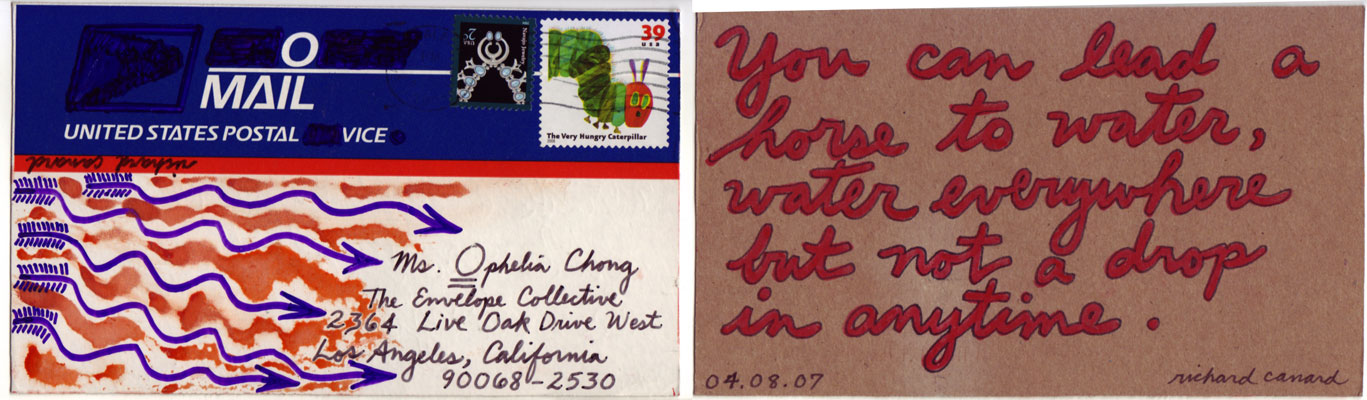 O
MAIL
UNITED STATES POSTAL VICE
USA 2c
Navajo Jewelry
39
USA
The Very Hungry Caterpillar
richard canard
Ms. Ophelia Chong
The Envelope Collective
2364 Live Oak Drive West
Los Angeles, California
90068-2530
You can lead a
horse to water,
water everywhere
but not a drop
in anytime.
04.08.07
richard canard